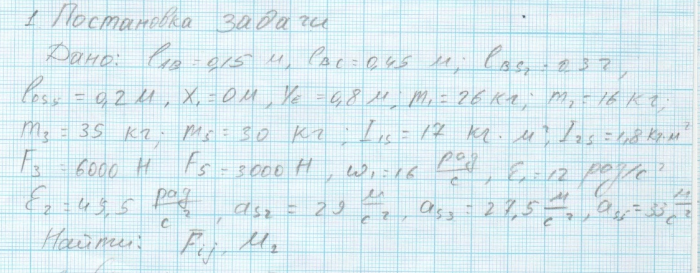 1 Постановка задачи
Дано: l_AB = 0,15 м, l_BC = 0,45 м; l_BS2 = 0,3 2,
l_DS5 = 0,2 м, X_1 = 0м, Y_E = 0,8 м; m_1 = 26 кг; m_2 = 16 кг;
m_3 = 35 кг; m_5 = 30 кг; I_1S = 17 кг·м², I_2S = 1,8 кг·м²
F_3 = 6000 Н F_5 = 3000 Н, ω_1 = 16 рад/с, ε_1 = 12 рад/с²
ε_2 = 49,5 рад/с², a_S2 = 29 м/с², a_S3 = 27,5 м/с², a_S5 = 33 м/с²
Найти: F̄_ij, M_2